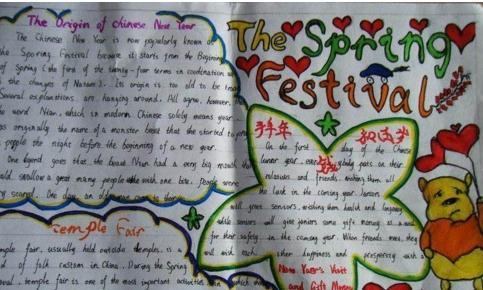 The Origin of Chinese New Year
The Chinese New Year is now popularly known as
the Sporing Festival because it starts from the Beginning
of Spring (the first of the twenty-four terms in coordination with
the changes of Nature). Its origin is too old to be trac
Several explanations are hanging around. All agree, however, th
word Nian, which in modern Chinese solely means year,
as originally the name of a monster beast that the started to prey
people the night before the beginning of a new year.
One legend goes that the beast Nian had a very big mouth tha
uld swallow a great many people with one bite. People were
scared. One day, an old man came to
Temple Fair
mple fair, usually held outside temples, is a
d of folk custom in China. During the Spring
val, temple fair is one of the most important activities in which
The Spring
Festival
On the first day of the Chinese
lunar year, everybody pays on their
relatives and friends, wishing them all
the luck in the coming year. Juniors
will greet seniors, wishing them health and longevity
while seniors will give juniors some gift money as a wish
for their safety in the coming year. When friends meet, they
will wish each other happiness and prosperity with a
New Year's Visit
and Gift Money